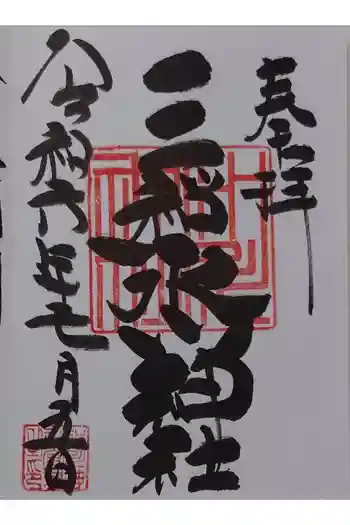 奉拝
三稲水神社
令和六年七月五日